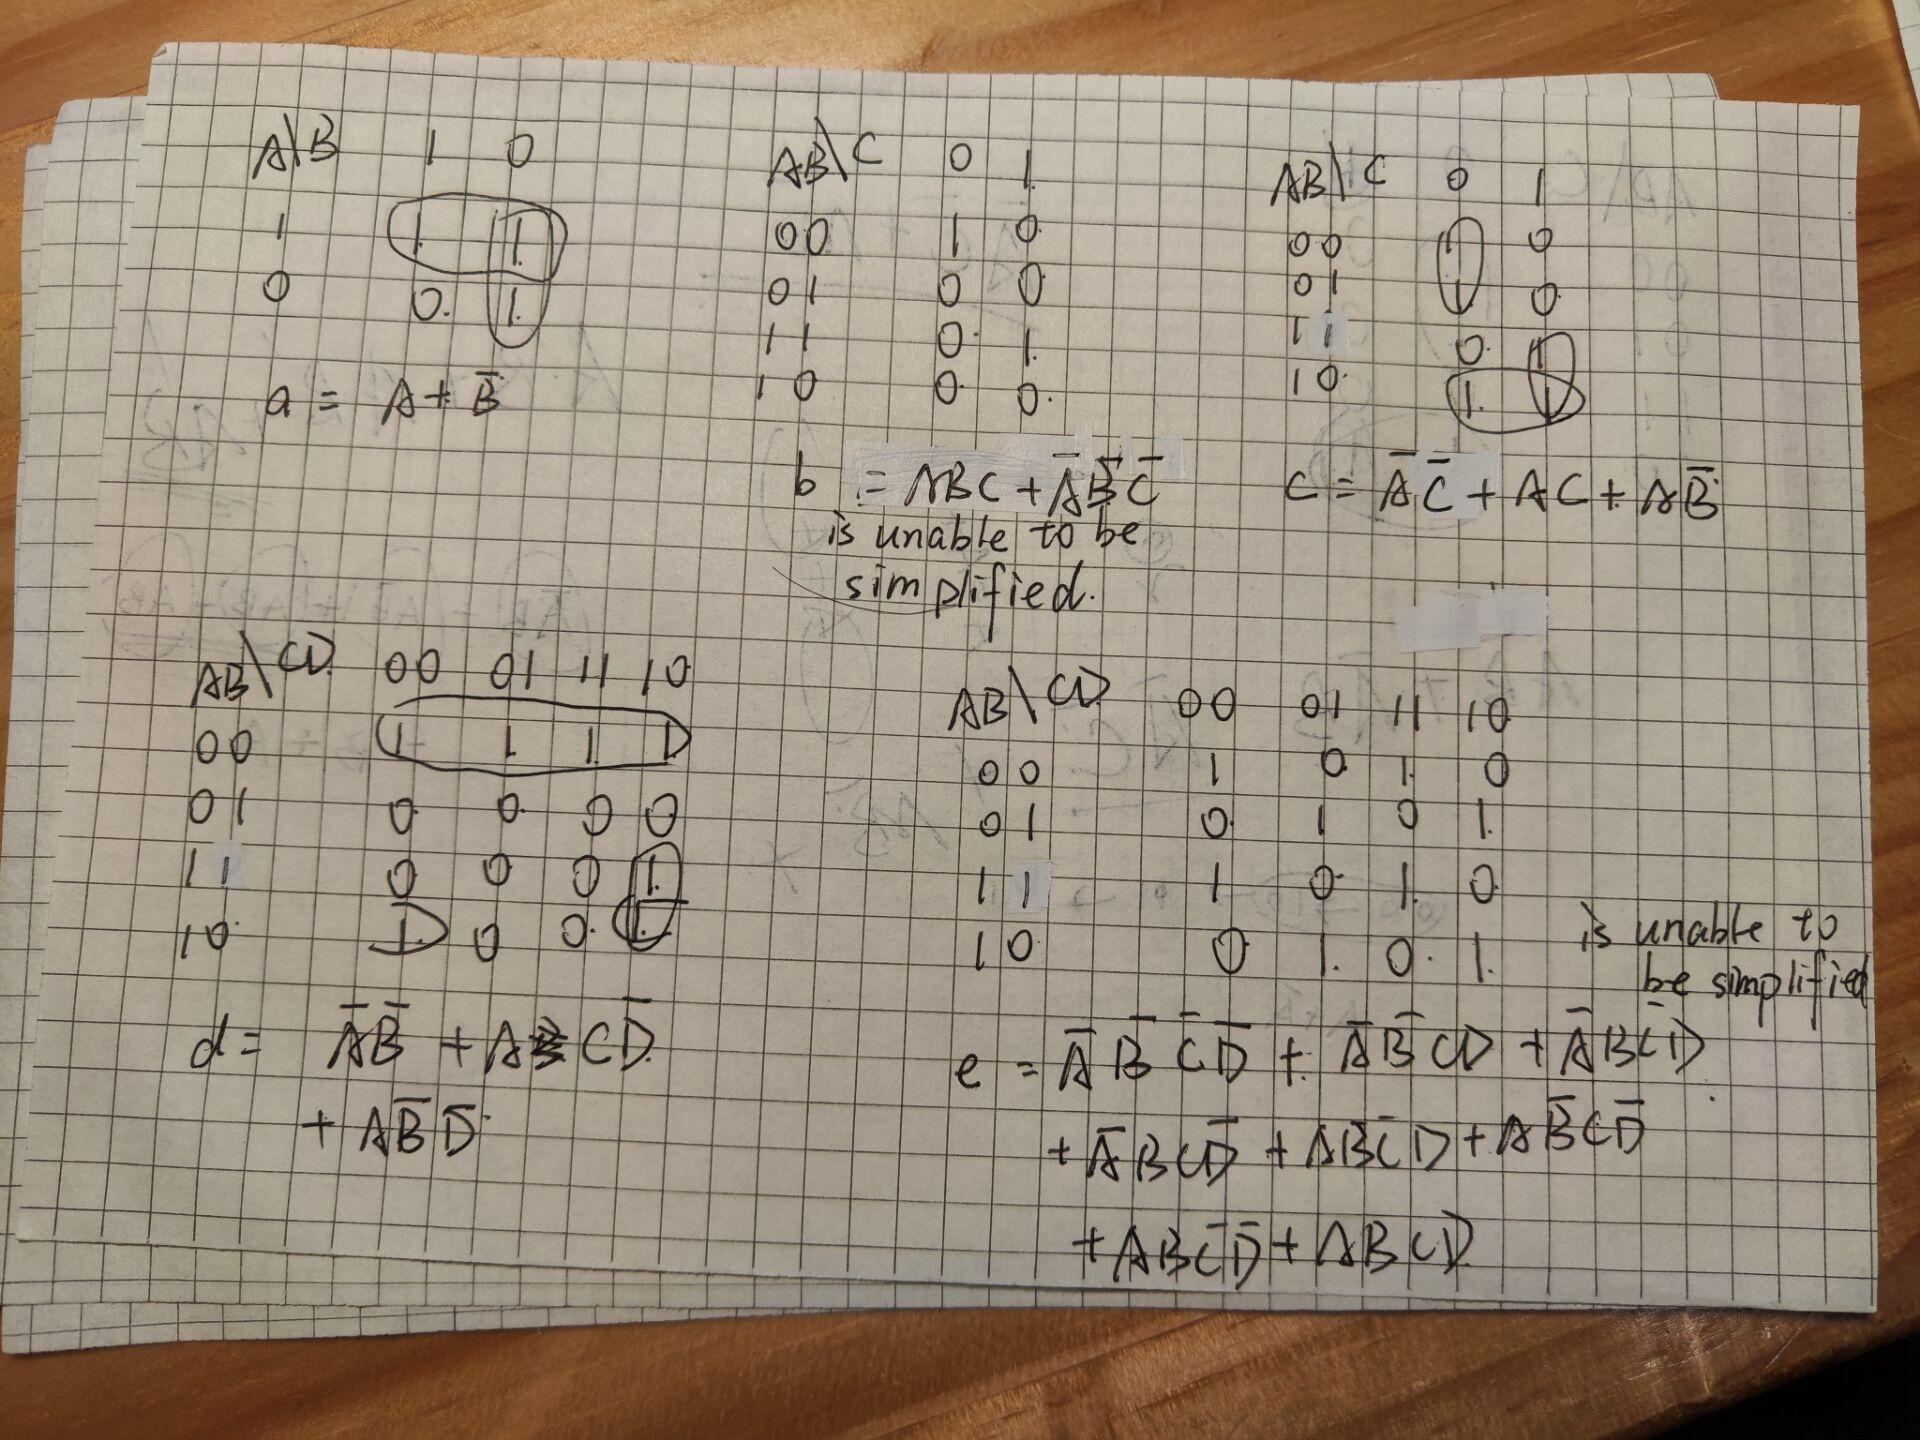 A\B 1 0
1 1 1
0 0 1
a = A + B̅
AB\C 0 1
00 1 0
01 0 0
11 0 1
10 0 0
b = ABC + A̅B̅C̅
is unable to be
simplified.
AB\C 0 1
00 1 0
01 1 0
11 0 1
10 1 1
C = A̅C̅ + AC + AB̅
AB\CD 00 01 11 10
00 1 1 1 1
01 0 0 0 0
11 0 0 0 1
10 1 0 0 1
d = A̅B̅ + ACD̅
+ AB̅D̅
AB\CD 00 01 11 10
00 1 0 1 0
01 0 1 0 1
11 1 0 1 0
10 0 1 0 1
is unable to
be simplified
e = A̅B̅C̅D̅ + A̅B̅CD + A̅BC̅D
+ A̅BCD̅ + ABC̅D + AB̅CD̅
+ ABC̅D̅ + ABCD